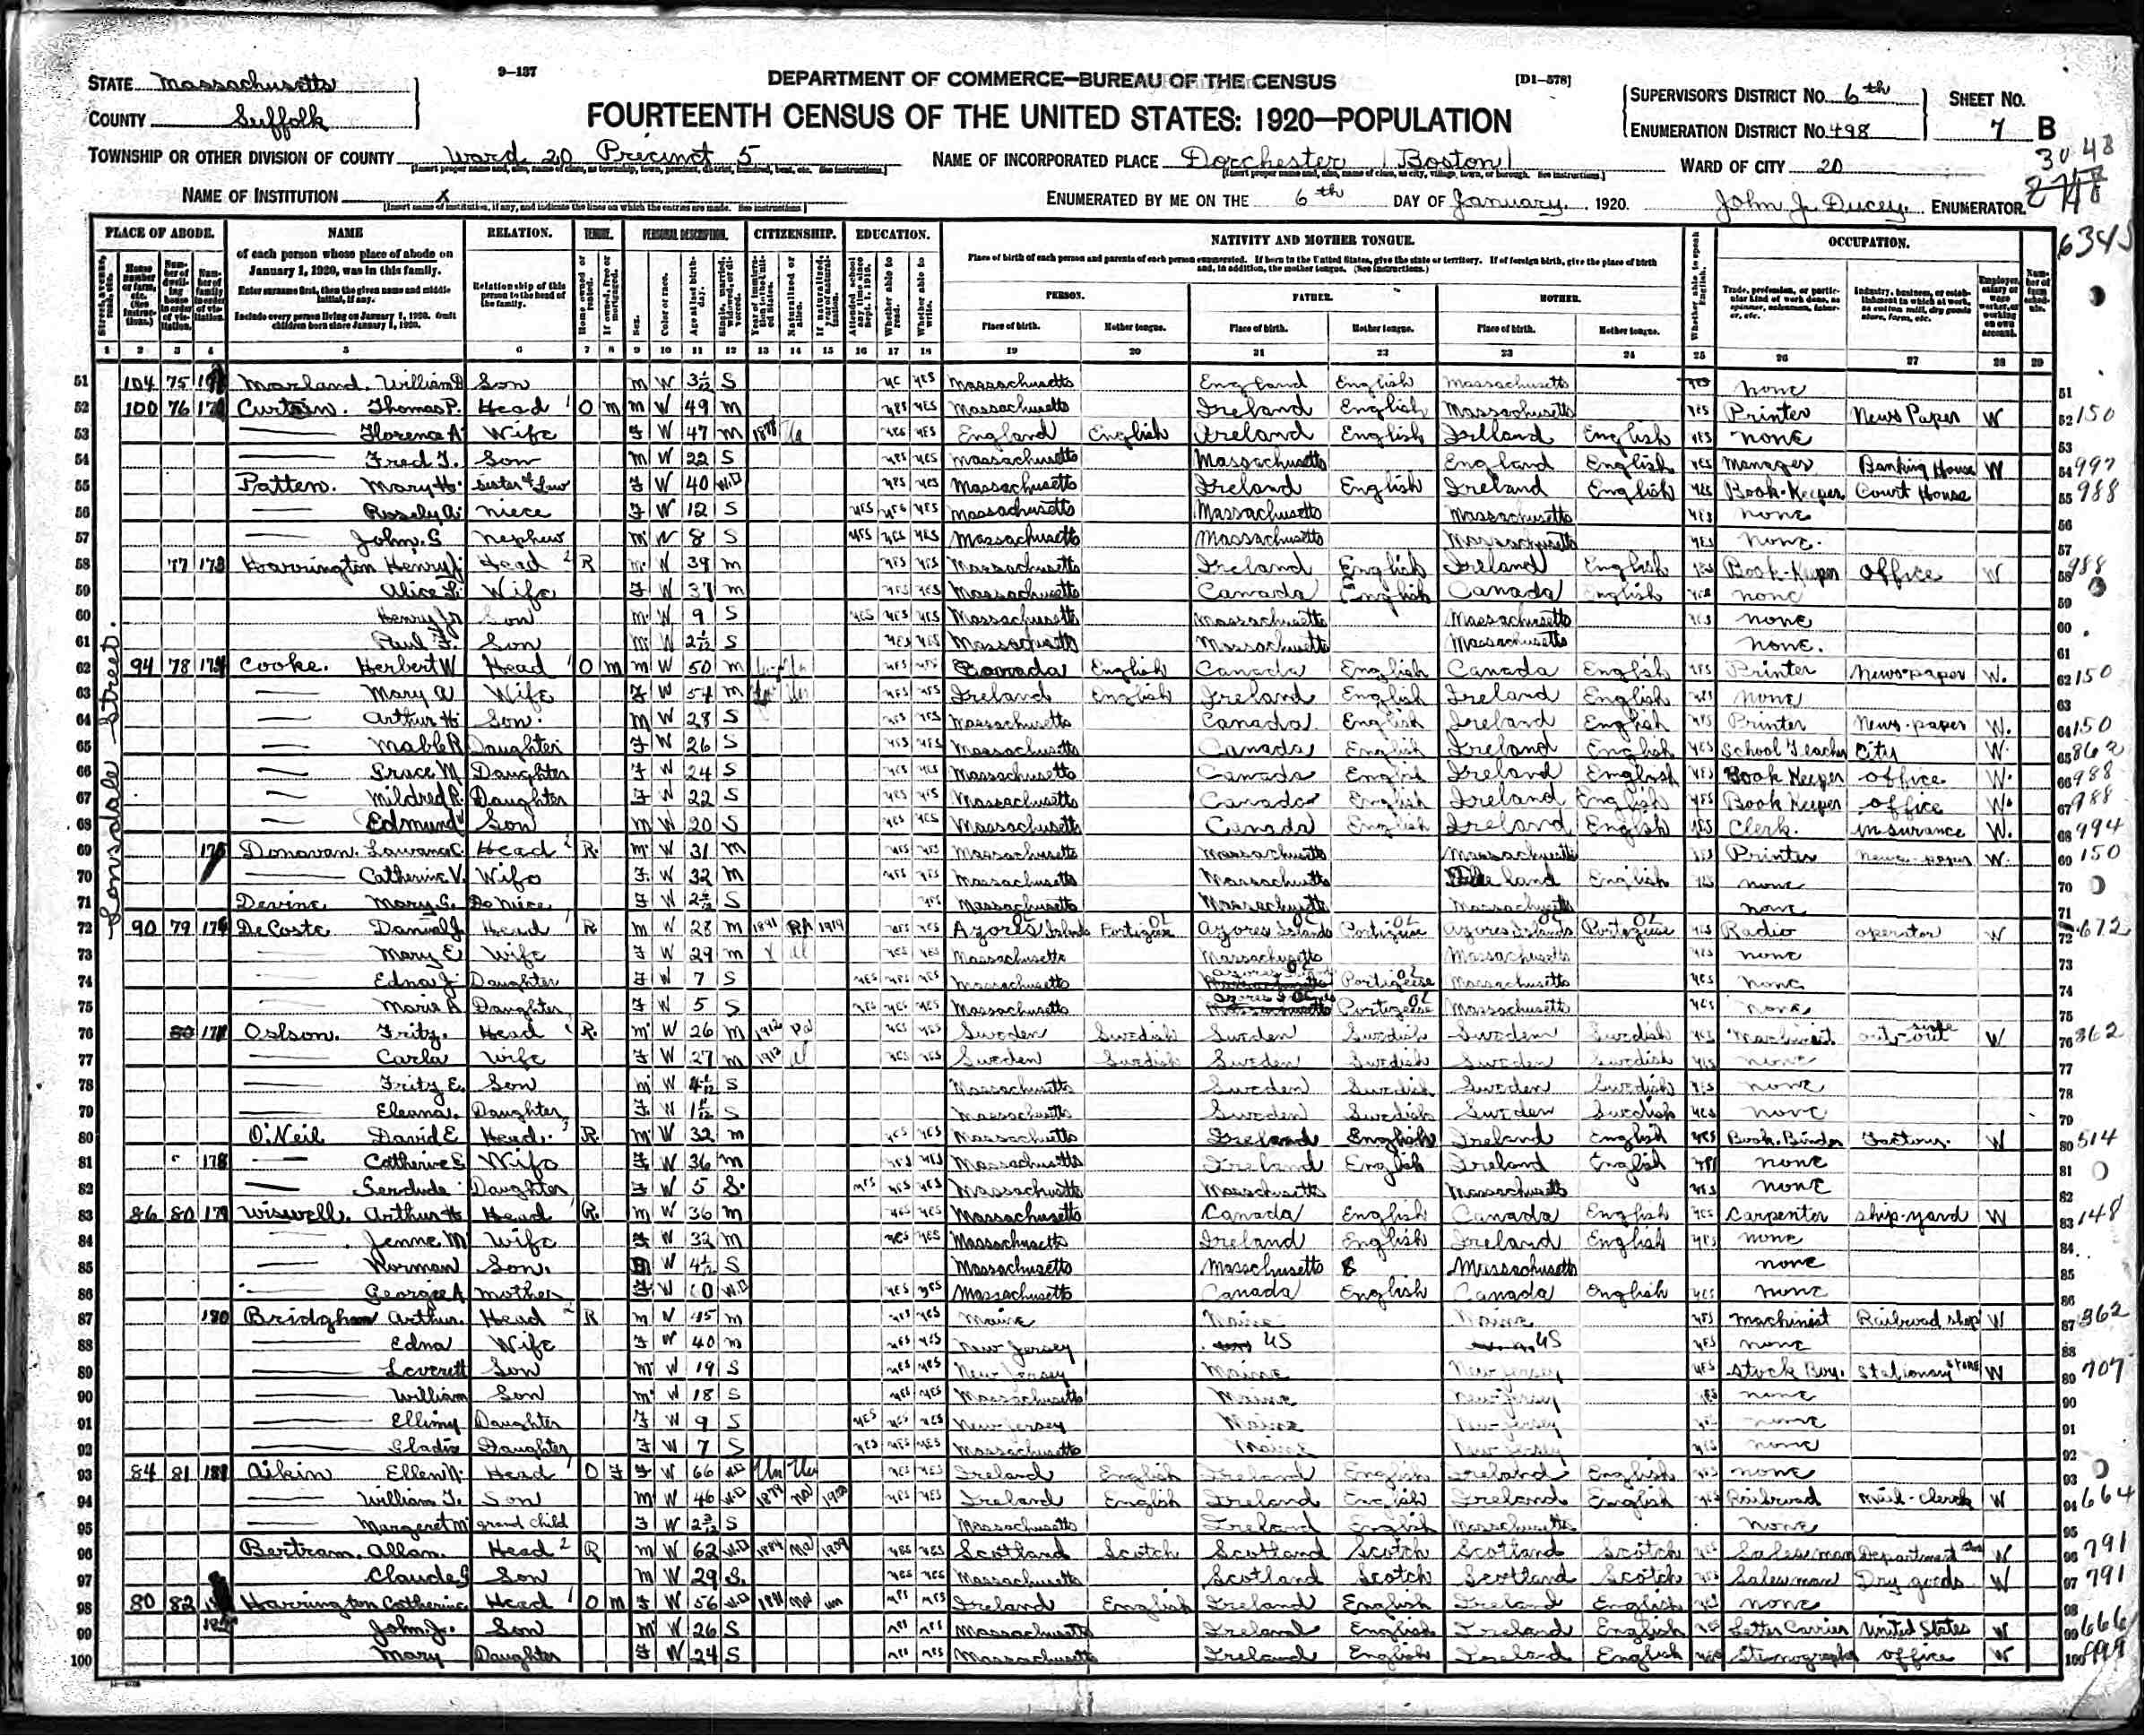 STATE Massachusetts
9-137
DEPARTMENT OF COMMERCE—BUREAU OF THE CENSUS
[D1-578]
COUNTY Suffolk
FOURTEENTH CENSUS OF THE UNITED STATES: 1920—POPULATION
SUPERVISOR'S DISTRICT No. 6th
SHEET No.
ENUMERATION DISTRICT No. 498
7 B
TOWNSHIP OR OTHER DIVISION OF COUNTY Ward 20 Precinct 5
NAME OF INCORPORATED PLACE Dorchester (Boston)
WARD OF CITY 20
3048
NAME OF INSTITUTION x
ENUMERATED BY ME ON THE 6th DAY OF January, 1920. John J. Ducey, ENUMERATOR.
6345
PLACE OF ABODE. NAME RELATION. TENURE. PERSONAL DESCRIPTION. CITIZENSHIP. EDUCATION. NATIVITY AND MOTHER TONGUE. OCCUPATION.
of each person whose place of abode on January 1, 1920, was in this family.
Enter surname first, then the given name and middle initial, if any.
Include every person living on January 1, 1920. Omit children born since January 1, 1920.
Relationship of this person to the head of the family.
PERSON. FATHER. MOTHER.
Place of birth. Mother tongue. Place of birth. Mother tongue. Place of birth. Mother tongue.
1 2 3 4 5 6 7 8 9 10 11 12 13 14 15 16 17 18 19 20 21 22 23 24 25 26 27 28 29
Lonsdale Street.
51 104 75 Marland. William Son m W 3 S yes Massachusetts England English Massachusetts none 51
52 100 76 Curtain. Thomas P. Head O m m W 49 m yes yes Massachusetts Ireland English Massachusetts yes Printer News Paper W 52 150
53 Florence A. Wife F W 47 m 1878 yes yes England English Ireland English English yes none
54 Fred J. Son m W 22 S yes yes Massachusetts Massachusetts England English yes Manager Banking House W 54 997
55 Patten. Mary H. Sister Law F W 40 WD yes yes Massachusetts Ireland English Ireland English yes Book-Keeper Court House 55 988
56 niece F W 12 S yes yes yes Massachusetts Massachusetts Massachusetts yes none 56
57 John. S nephew m W 8 S yes yes yes Massachusetts Massachusetts Massachusetts yes none. 57
58 77 173 Harrington Henry J. Head R m W 39 m yes yes Massachusetts Ireland English Ireland English yes Book-Keeper office W 58 988
59 Alice F. Wife F W 37 m yes yes Massachusetts Canada English Canada English yes none 59
60 Henry Jr Son m W 9 S yes yes yes Massachusetts Massachusetts Massachusetts yes none 60
61 Paul F. Son m W S yes yes Massachusetts Massachusetts Massachusetts none. 61
62 94 78 174 Cooke. Herbert W Head O m m W 50 m yes yes Canada English Canada English Canada English yes Printer Newspaper W. 62 150
63 Mary A Wife F W 54 m yes yes Ireland English Ireland English Ireland English yes none 63
64 Arthur H. Son. m W 28 S yes yes Massachusetts Canada English Ireland English yes Printer News-paper W. 64 150
65 Mable R Daughter F W 26 S yes yes Massachusetts Canada English Ireland English yes School Teacher City W. 65 862
66 Grace M Daughter F W 24 S yes yes Massachusetts Canada English Ireland English yes Book Keeper office W. 66 988
67 Mildred R. Daughter F W 22 S yes yes Massachusetts Canada English Ireland English yes Book Keeper office W. 67 988
68 Edmund Son m W 20 S yes yes Massachusetts Canada English Ireland English yes Clerk. insurance W. 68 994
69 175 Donovan. Head R. m W 31 m yes yes Massachusetts Massachusetts Massachusetts yes Printer news-paper W. 69 150
70 Catherine V. Wife F W 32 m yes yes Massachusetts Massachusetts English yes none 70
71 Devine Mary niece F W S yes Massachusetts Massachusetts Massachusetts none 71
72 90 79 176 DeCoste Daniel J. Head R m W 28 m 1891 PA 1919 yes yes Azores Islands Portugese Azores Islands Portugese Azores Islands Portugese yes Radio operator W 72 672
73 Mary E Wife F W 29 m yes yes Massachusetts Massachusetts Massachusetts yes none 73
74 Edna J. Daughter F W 7 S yes yes yes Massachusetts Azores Portugese Massachusetts yes none 74
75 Marie A Daughter F W 5 S yes yes yes Massachusetts Azores Portugese Massachusetts yes none 75
76 80 177 Oslson. Fritz. Head R. m W 26 m 1912 Pa yes yes Sweden Swedish Sweden Swedish Sweden Swedish yes Machinist W 76 362
77 Carla Wife F W 27 m 1912 al yes yes Sweden Swedish Sweden Swedish Sweden Swedish yes none 77
78 Fritz E. Son m W S Massachusetts Sweden Swedish Sweden Swedish yes none 78
79 Eleanor. Daughter F W S Massachusetts Sweden Swedish Sweden Swedish yes none 79
80 O'Neil David E Head. R. m W 32 m yes yes Massachusetts Ireland English Ireland English yes Book-Binder Factory. W 80 514
81 178 Catherine E Wife F W 36 m yes yes Massachusetts Ireland English Ireland English yes none 81
82 Daughter F W 5 S. yes yes yes Massachusetts Massachusetts Massachusetts yes none 82
83 86 80 179 Wiswell. Arthur H Head R. m W 36 m yes yes Massachusetts Canada English Canada English yes Carpenter Ship-yard W 83 148
84 Jenne M Wife F W 32 m yes yes Massachusetts Ireland English Ireland English yes none 84
85 Norman Son. m W S Massachusetts Massachusetts Massachusetts none 85
86 Georgie A mother F W WD yes yes Massachusetts Canada English Canada English yes none 86
87 180 Bridgham Arthur. Head R m W 45 m yes yes Maine Maine Maine yes machinist Railroad shop W 87 362
88 Edna Wife F W 40 m yes yes New Jersey US US yes none 88
89 Leverett Son m W 19 S yes yes New Jersey Maine New Jersey yes Stock Boy. Stationary store W 89 707
90 William Son m W 18 S yes yes Massachusetts Maine New Jersey yes none 90
91 Daughter F W 9 S yes yes yes New Jersey Maine New Jersey none 91
92 Gladis Daughter F W 7 S yes yes yes Massachusetts Maine New Jersey yes none 92
93 84 81 181 Aikin Ellen N. Head O F F W 66 WD Un Un yes yes Ireland English Ireland English Ireland English yes none 93
94 William J. Son m W 46 WD na yes yes Ireland English Ireland English Ireland English yes Railroad Mail-clerk W 94 664
95 Margeret M grand child F W S Massachusetts Ireland English Massachusetts none 95
96 Bertram. Allan. Head R m W 62 WD 1884 na 1909 yes yes Scotland Scotch Scotland Scotch Scotland Scotch yes Salesman Department W 96 791
97 Claude Son m W 29 S. yes yes Massachusetts Scotland Scotch Scotland Scotch yes Salesman Dry goods W 97 791
98 80 82 Harrington Catherine Head O m F W 56 WD na un yes yes Ireland English Ireland English Ireland English yes none 98
99 John J. Son m W 26 S yes yes Massachusetts Ireland English Ireland English yes Letter Carrier United States W 99 666
100 Mary Daughter F W 24 S yes yes Massachusetts Ireland English Ireland English yes Stenographer office W 100 999